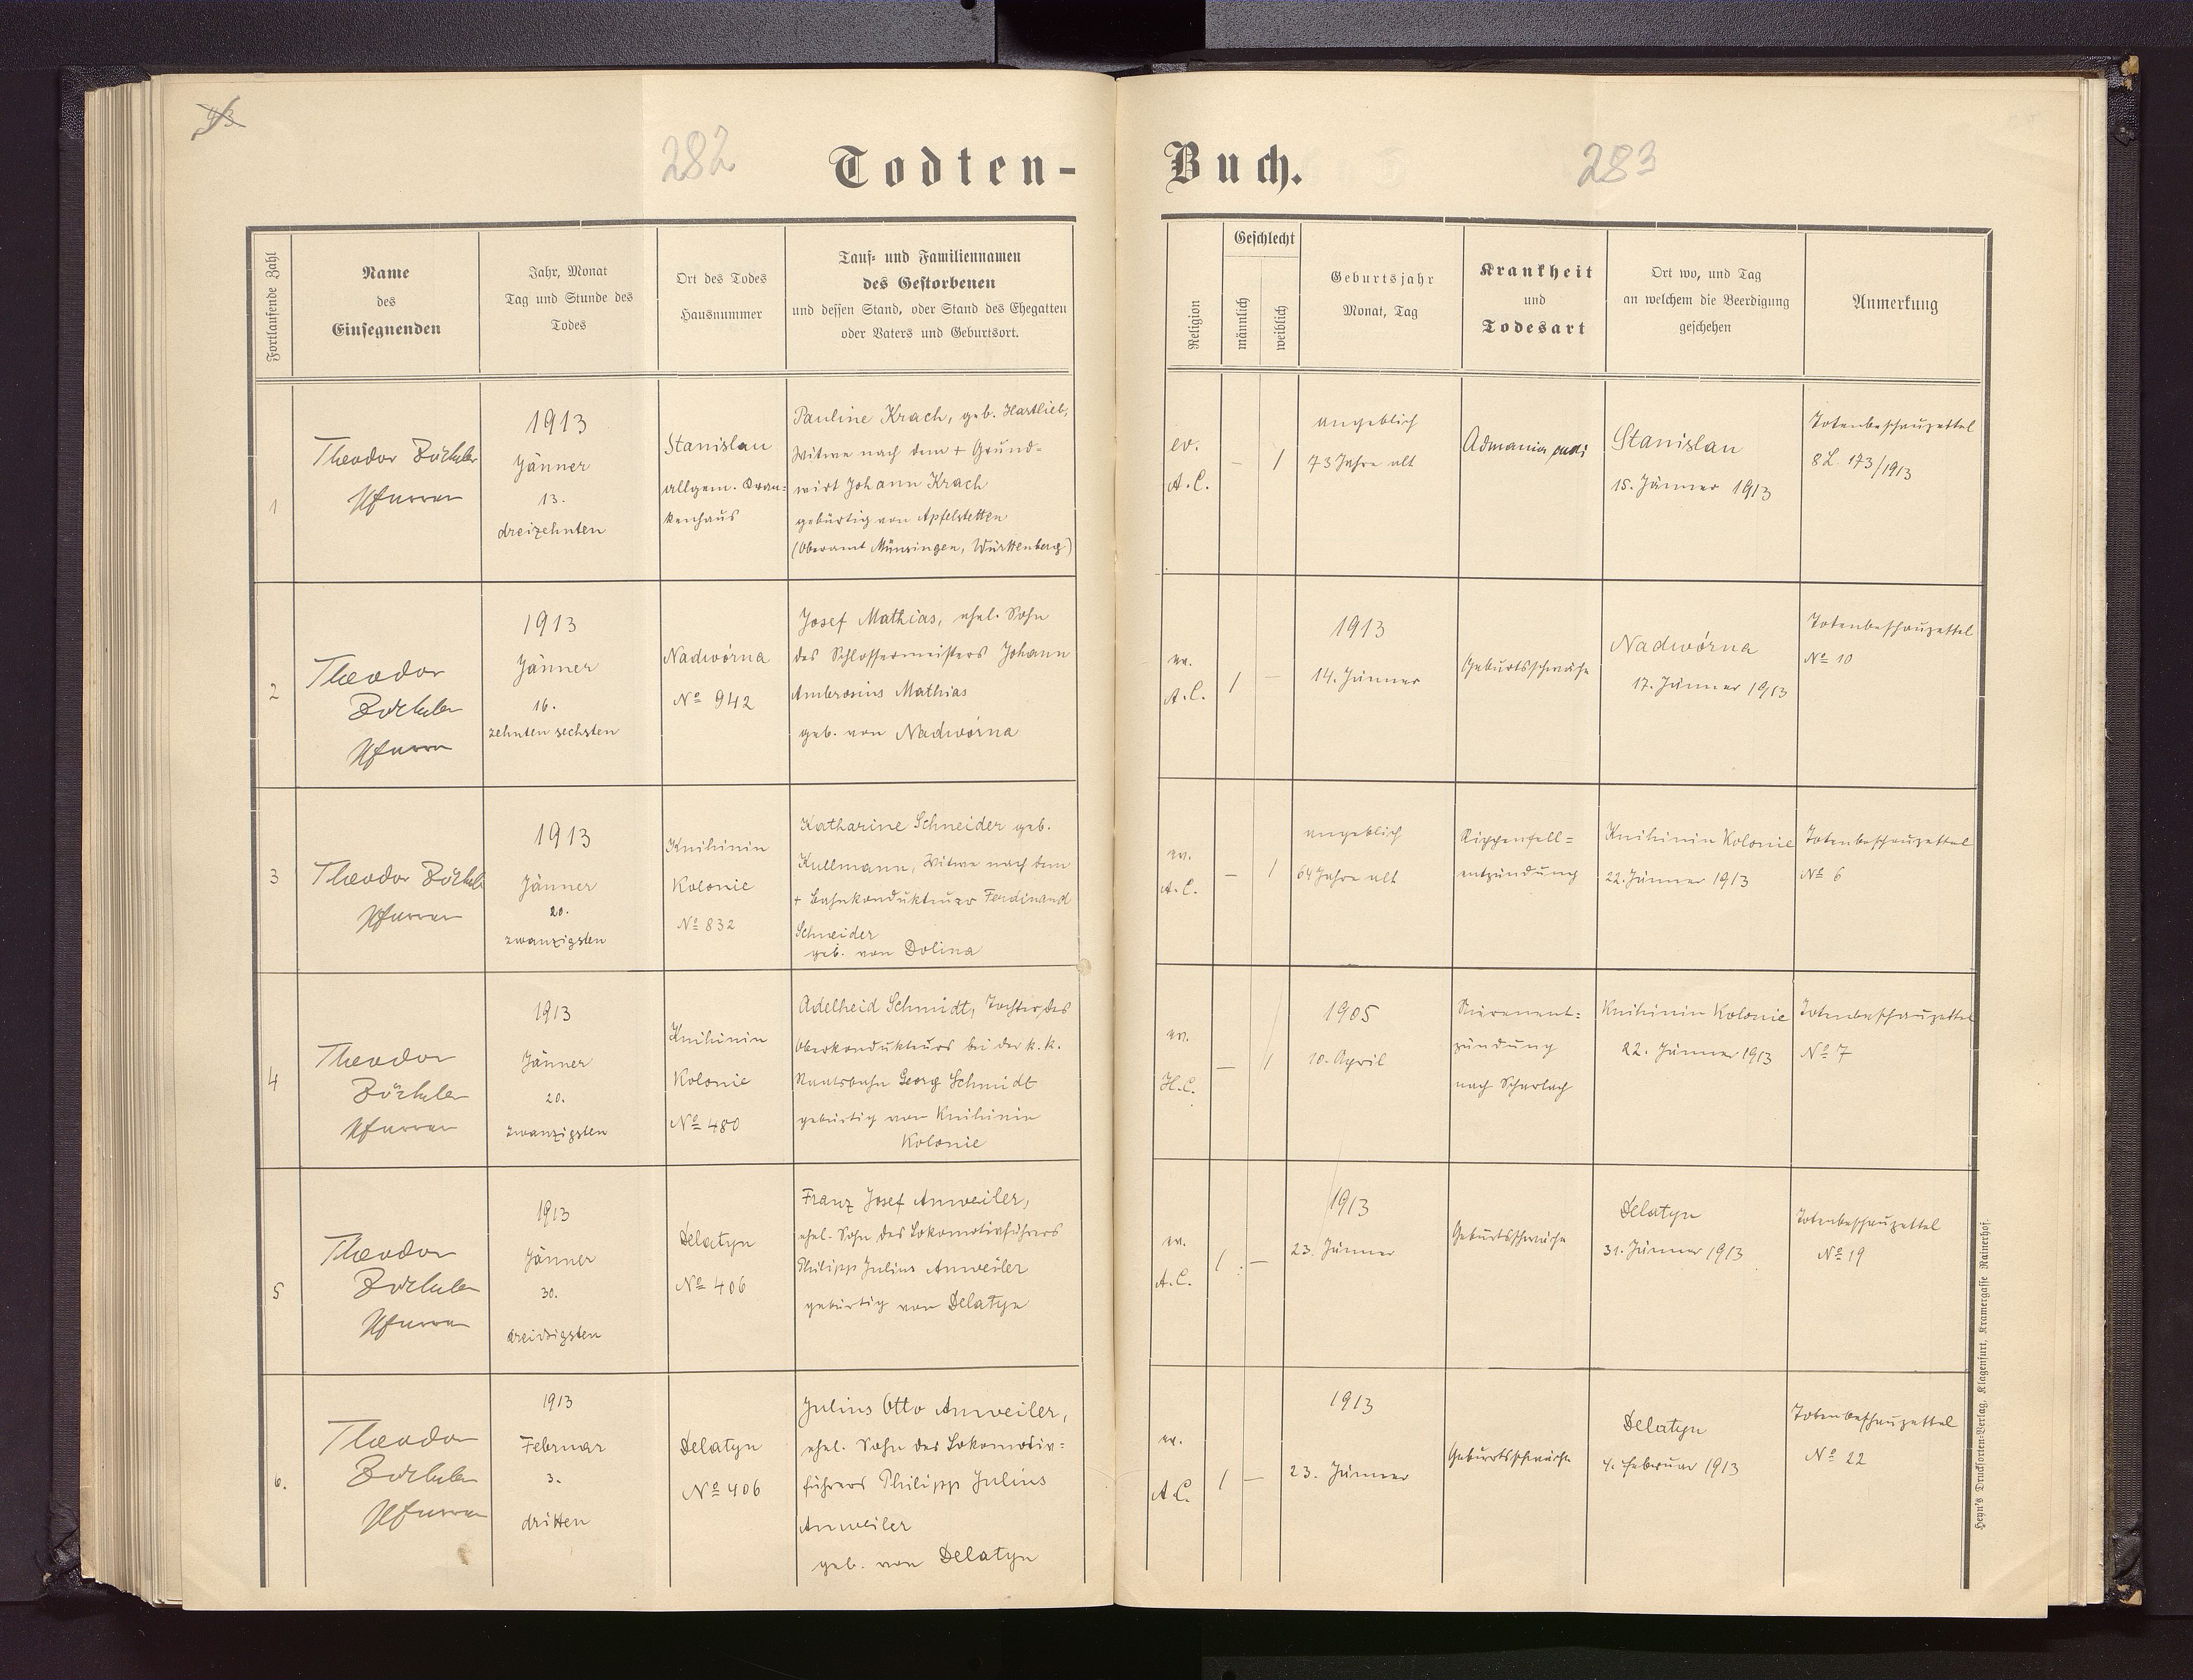 282
Todten-
Buch.
283
Fortlaufende Zahl
Name
des
Einsegnenden
Jahr, Monat
Tag und Stunde des
Todes
Ort des Todes
Hausnummer
Tauf- und Familiennamen
des Gestorbenen
und dessen Stand, oder Stand des Ehegatten
oder Vaters und Geburtsort.
Religion
Geschlecht
männlich
weiblich
Geburtsjahr
Monat, Tag
Krankheit
und
Todesart
Ort wo, und Tag
an welchem die Beerdigung
geschehen
Anmerkung
1
Theodor Zöckler
Pfarrer
1913
Jänner
13.
dreizehnten
Stanislau
allgem. Kran-
kenhaus
Pauline Krach, geb. Hartlieb,
Witwe nach dem + Grund-
wirt Johann Krach
gebürtig von Apfelstetten
(Oberamt Münsingen, Württenberg)
ev.
A.C.
–
1
angeblich
73 Jahre alt
Stanislau
15. Jänner 1913
Totenbeschauzettel
173/1913
2
Theodor
Zöckler
Pfarrer
1913
Jänner
16.
zehnten sechsten
Nadwórna
No 942
Josef Mathias, ehel. Sohn
des Schlossermeisters Johann
Ambrosius Mathias
geb. von Nadwórna
ev.
A.C.
1
–
1913
14. Jänner
Geburtsschwäche
Nadwórna
17. Jänner 1913
Totenbeschauzettel
No 10
3
Theodor Zöckler
Pfarrer
1913
Jänner
20.
zwanzigsten
Knihinin
Kolonie
No 832
Katharine Schneider geb.
Kullmann, Witwe nach dem
+ Bahnkondukteur Ferdinand
Schneider
geb. von Dolina
ev.
A.C.
–
1
angeblich
64 Jahre alt
Rippenfell=
entzündung
Knihinin Kolonie
22. Jänner 1913
Totenbeschauzettel
No 6
4
Theodor
Zöckler
Pfarrer
1913
Jänner
20.
zwanzigsten
Knihinin
Kolonie
No 480
Adelheid Schmidt, Tochter des
Oberkondukteurs bei der k.k.
Staatsbahn Georg Schmidt
gebürtig von Knihinin
Kolonie
ev.
H.C.
–
1
1905
10. April
Nierenent=
zündung
nach Scharlach
Knihinin Kolonie
22. Jänner 1913
Totenbeschauzettel
No 7
5
Theodor
Zöckler
Pfarrer
1913
Jänner
30.
dreissigsten
Delatyn
No 406
Franz Josef Anweiler,
ehel. Sohn des Lokomotivführers
Philipp Julius Anweiler
gebürtig von Delatyn
ev.
A.C.
1
–
1913
23. Jänner
Geburtsschwäche
Delatyn
31. Jänner 1913
Totenbeschauzettel
No 19
6.
Theodor
Zöckler
Pfarrer
1913
Februar
3.
dritten
Delatyn
No 406
Julius Otto Anweiler,
ehel. Sohn des Lokomotiv=
führers Philipp Julius
Anweiler
geb. von Delatyn
ev.
A.C.
1
–
1913
23. Jänner
Geburtsschwäche
Delatyn
4. Februar 1913
Totenbeschauzettel
No 22
Heyn's Drucksorten-Verlag, Klagenfurt, Kramergasse Rainerhof.